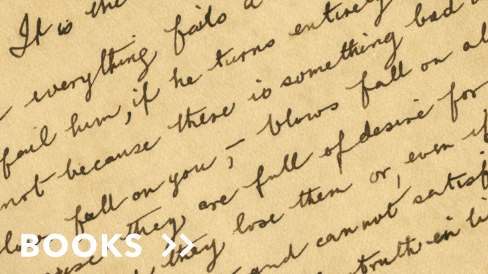 It is the
everything fails a
fail him, if he turns entirely
not because there is something bad
fall on you; – blows fall on al
they are full of desire for
they lose them or, even if
and cannot satisf
truth in li
BOOKS >>